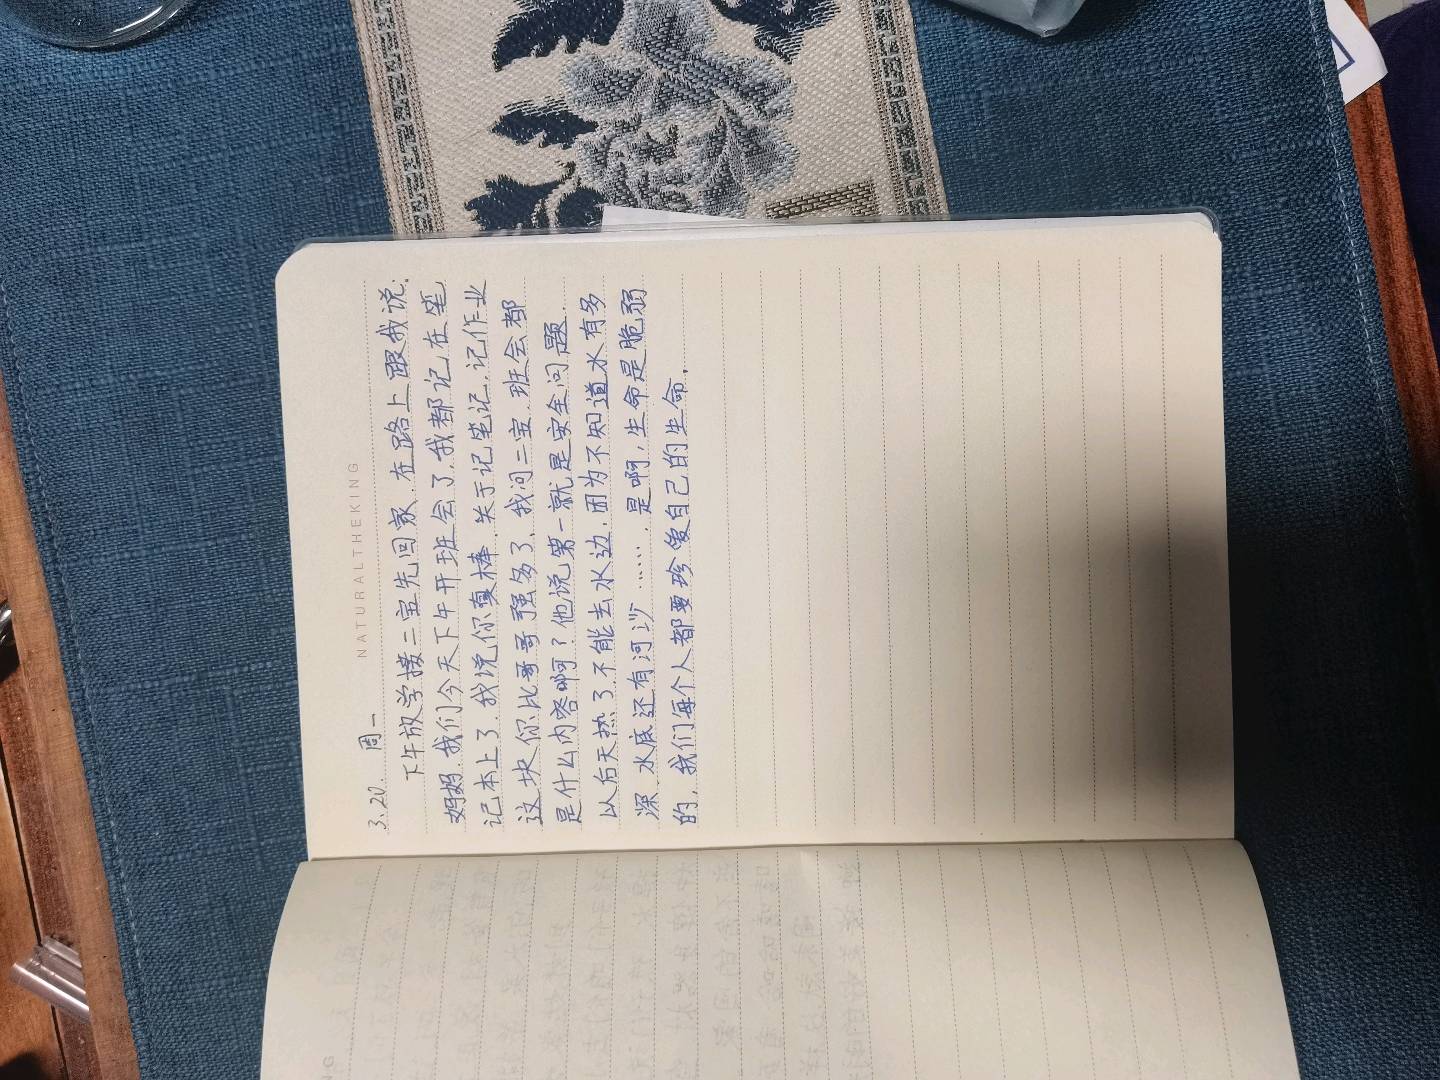 NATURALTHEKING
3.20. 周一
下午放学接二宝先回家.在路上跟我说.
妈妈.我们今天下午开班会了.我都记在笔
记本上了.我说你真棒.关于记笔记.记作业
这块你比哥哥强多了、我问二宝.班会都
是什么内容啊?他说第一就是安全问题.
以后天热了不能去水边.因为不知道水有多
深.水底还有河沙…….是啊,生命是脆弱
的,我们每个人都要珍爱自己的生命,
NG